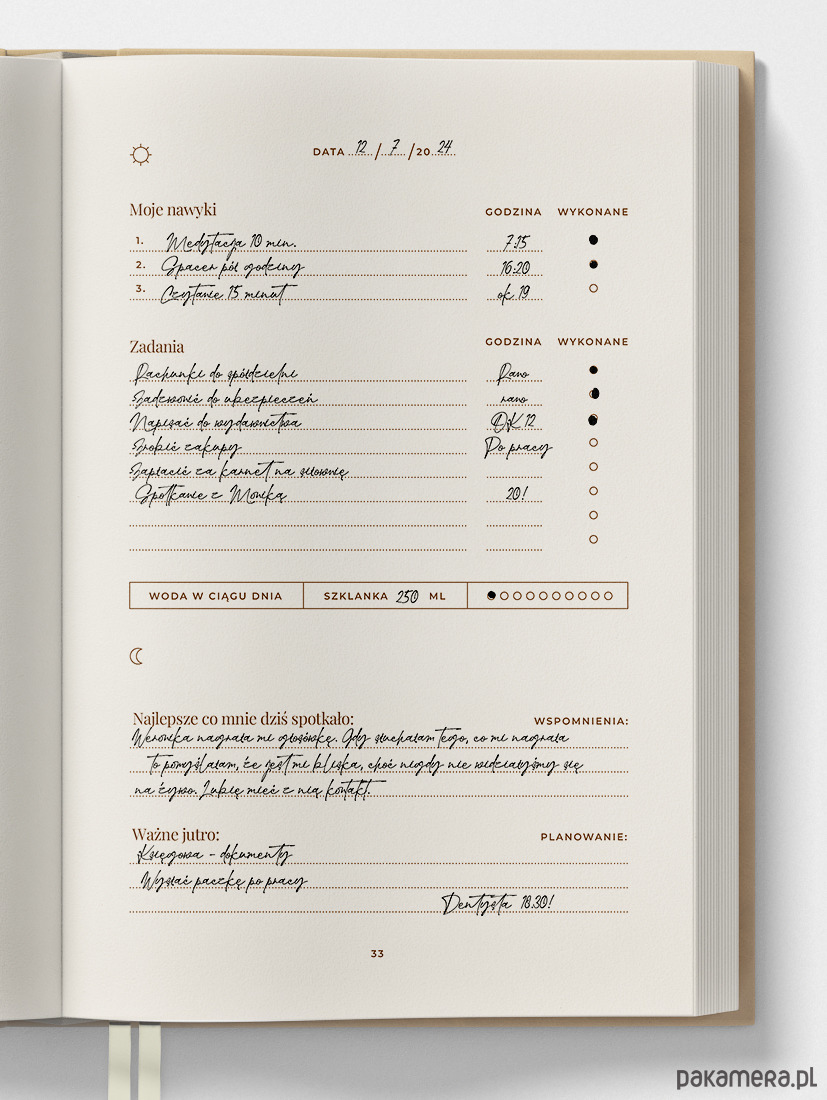 DATA 12 / 7 / 20 24
Moje nawyki GODZINA WYKONANE
1. Medytacja 10 min. 7:15
2. Spacer pół godziny 16:20
3. Czytanie 15 minut ok 19
Zadania GODZINA WYKONANE
Rachunki do spółdzielni Rano
Zadzwonić do ubezpieczeń rano
Napisać do wydawnictwa OK 12
Zrobić zakupy Po pracy
Zapłacić za karnet na siłownię
Spotkanie z Moniką 20!
WODA W CIĄGU DNIA SZKLANKA 250 ML
Najlepsze co mnie dziś spotkało: WSPOMNIENIA:
Weronika nagrała mi głosówkę. Gdy słuchałam tego, co mi nagrała
to pomyślałam, że jest mi bliska, choć nigdy nie widziałyśmy się
na żywo. Lubię mieć z nią kontakt.
Ważne jutro: PLANOWANIE:
Księgowa - dokumenty
Wysłać paczkę po pracy
Dentysta 18.30!
33
pakamera.pl